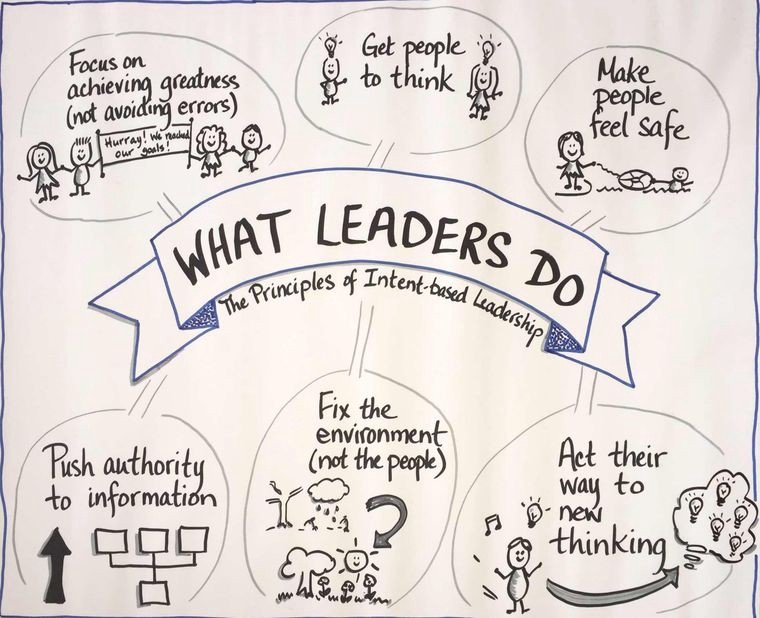 Focus on
achieving greatness
(not avoiding errors)
Hurray! We reached
our goals!
Get people
to think
Make
people
feel safe
WHAT LEADERS DO
The Principles of Intent-based Leadership
Push authority
to information
Fix the
environment
(not the people)
Act their
way to
new
thinking